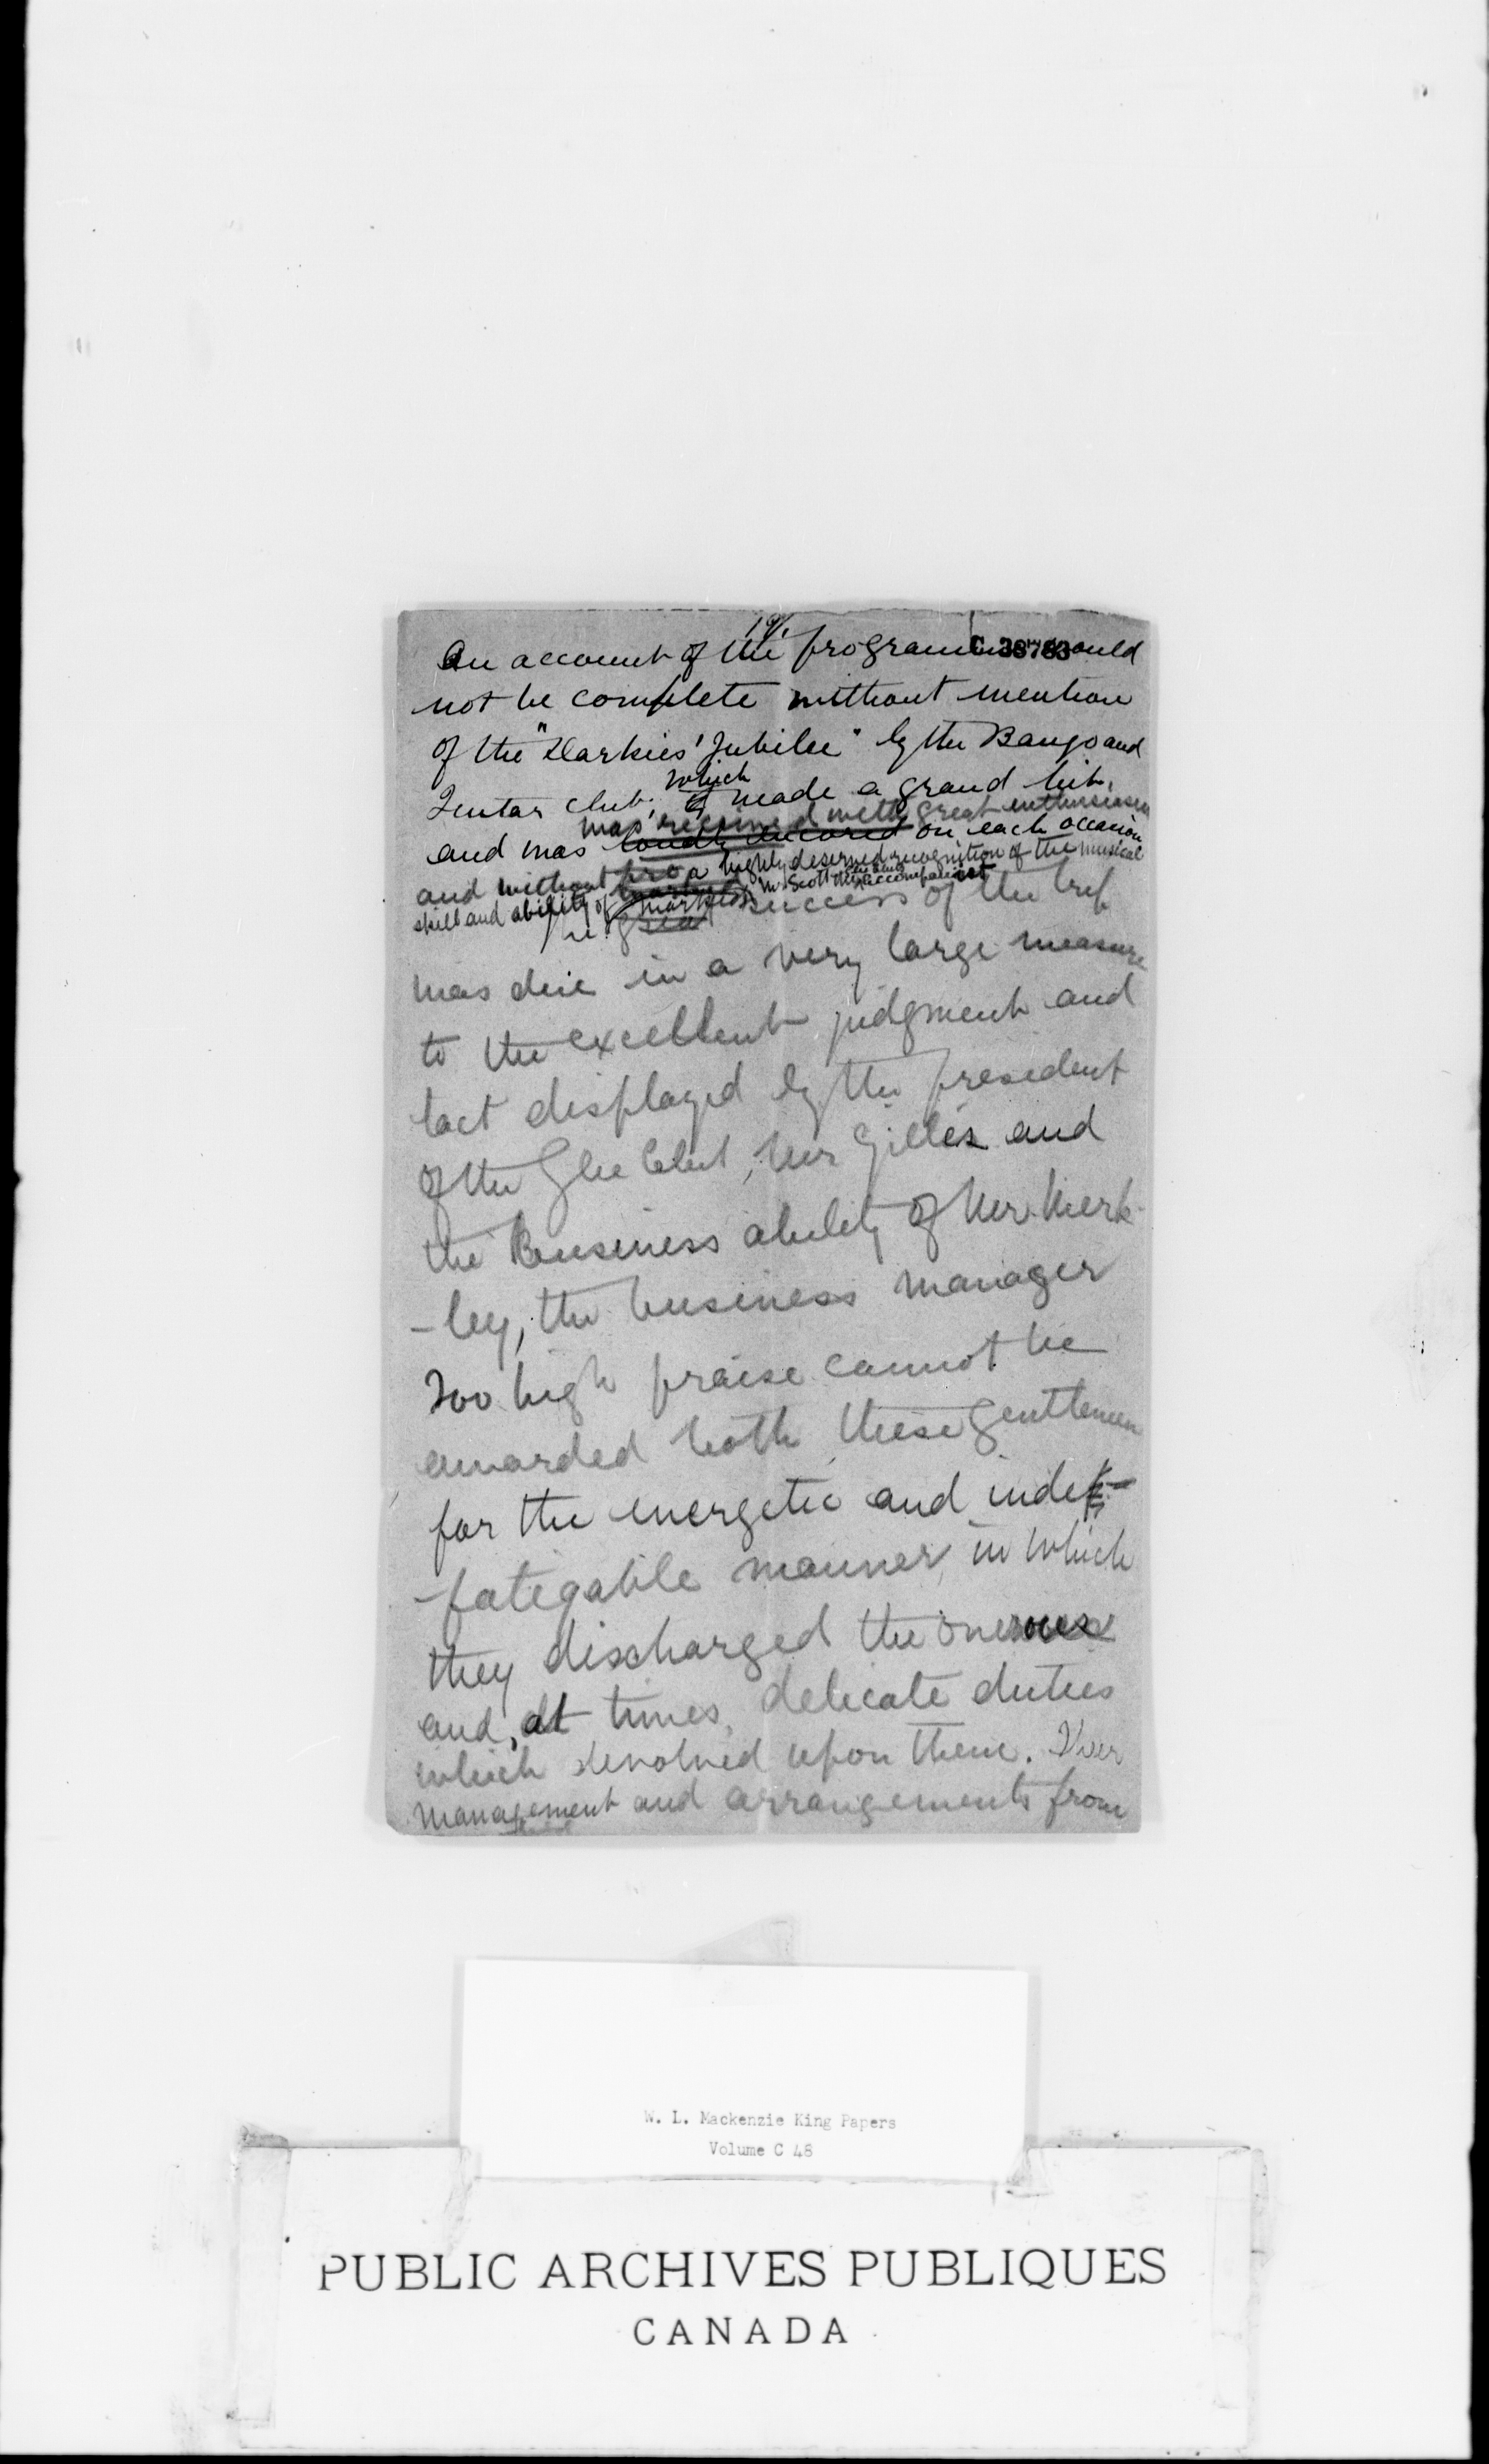 19/.
An account of the programme would
C 38783
not be complete without mention
of the "Darkies' Jubilee" by the Banjo and
which
Guitar Club, made a grand hit,
was received with great enthusiasm
and was loudly encored on each occasion
and without a highly deserved recognition of the musical
skill and ability of Mr Scott the accompanist
marked success of the trip
great
was due in a very large measure
to the excellent judgment and
tact displayed by the president
of the Glee Club, Mr Gillis and
the Business ability of Mr. Merk
-ley, the business manager
Too high praise cannot be
awarded both these gentlemen
for the energetic and inde
-fatigable manner in which
they discharged the onerous
and, at times, delicate duties
which devolved upon them. Their
management and arrangements from
W. L. Mackenzie King Papers
Volume C 48
PUBLIC ARCHIVES PUBLIQUES
CANADA